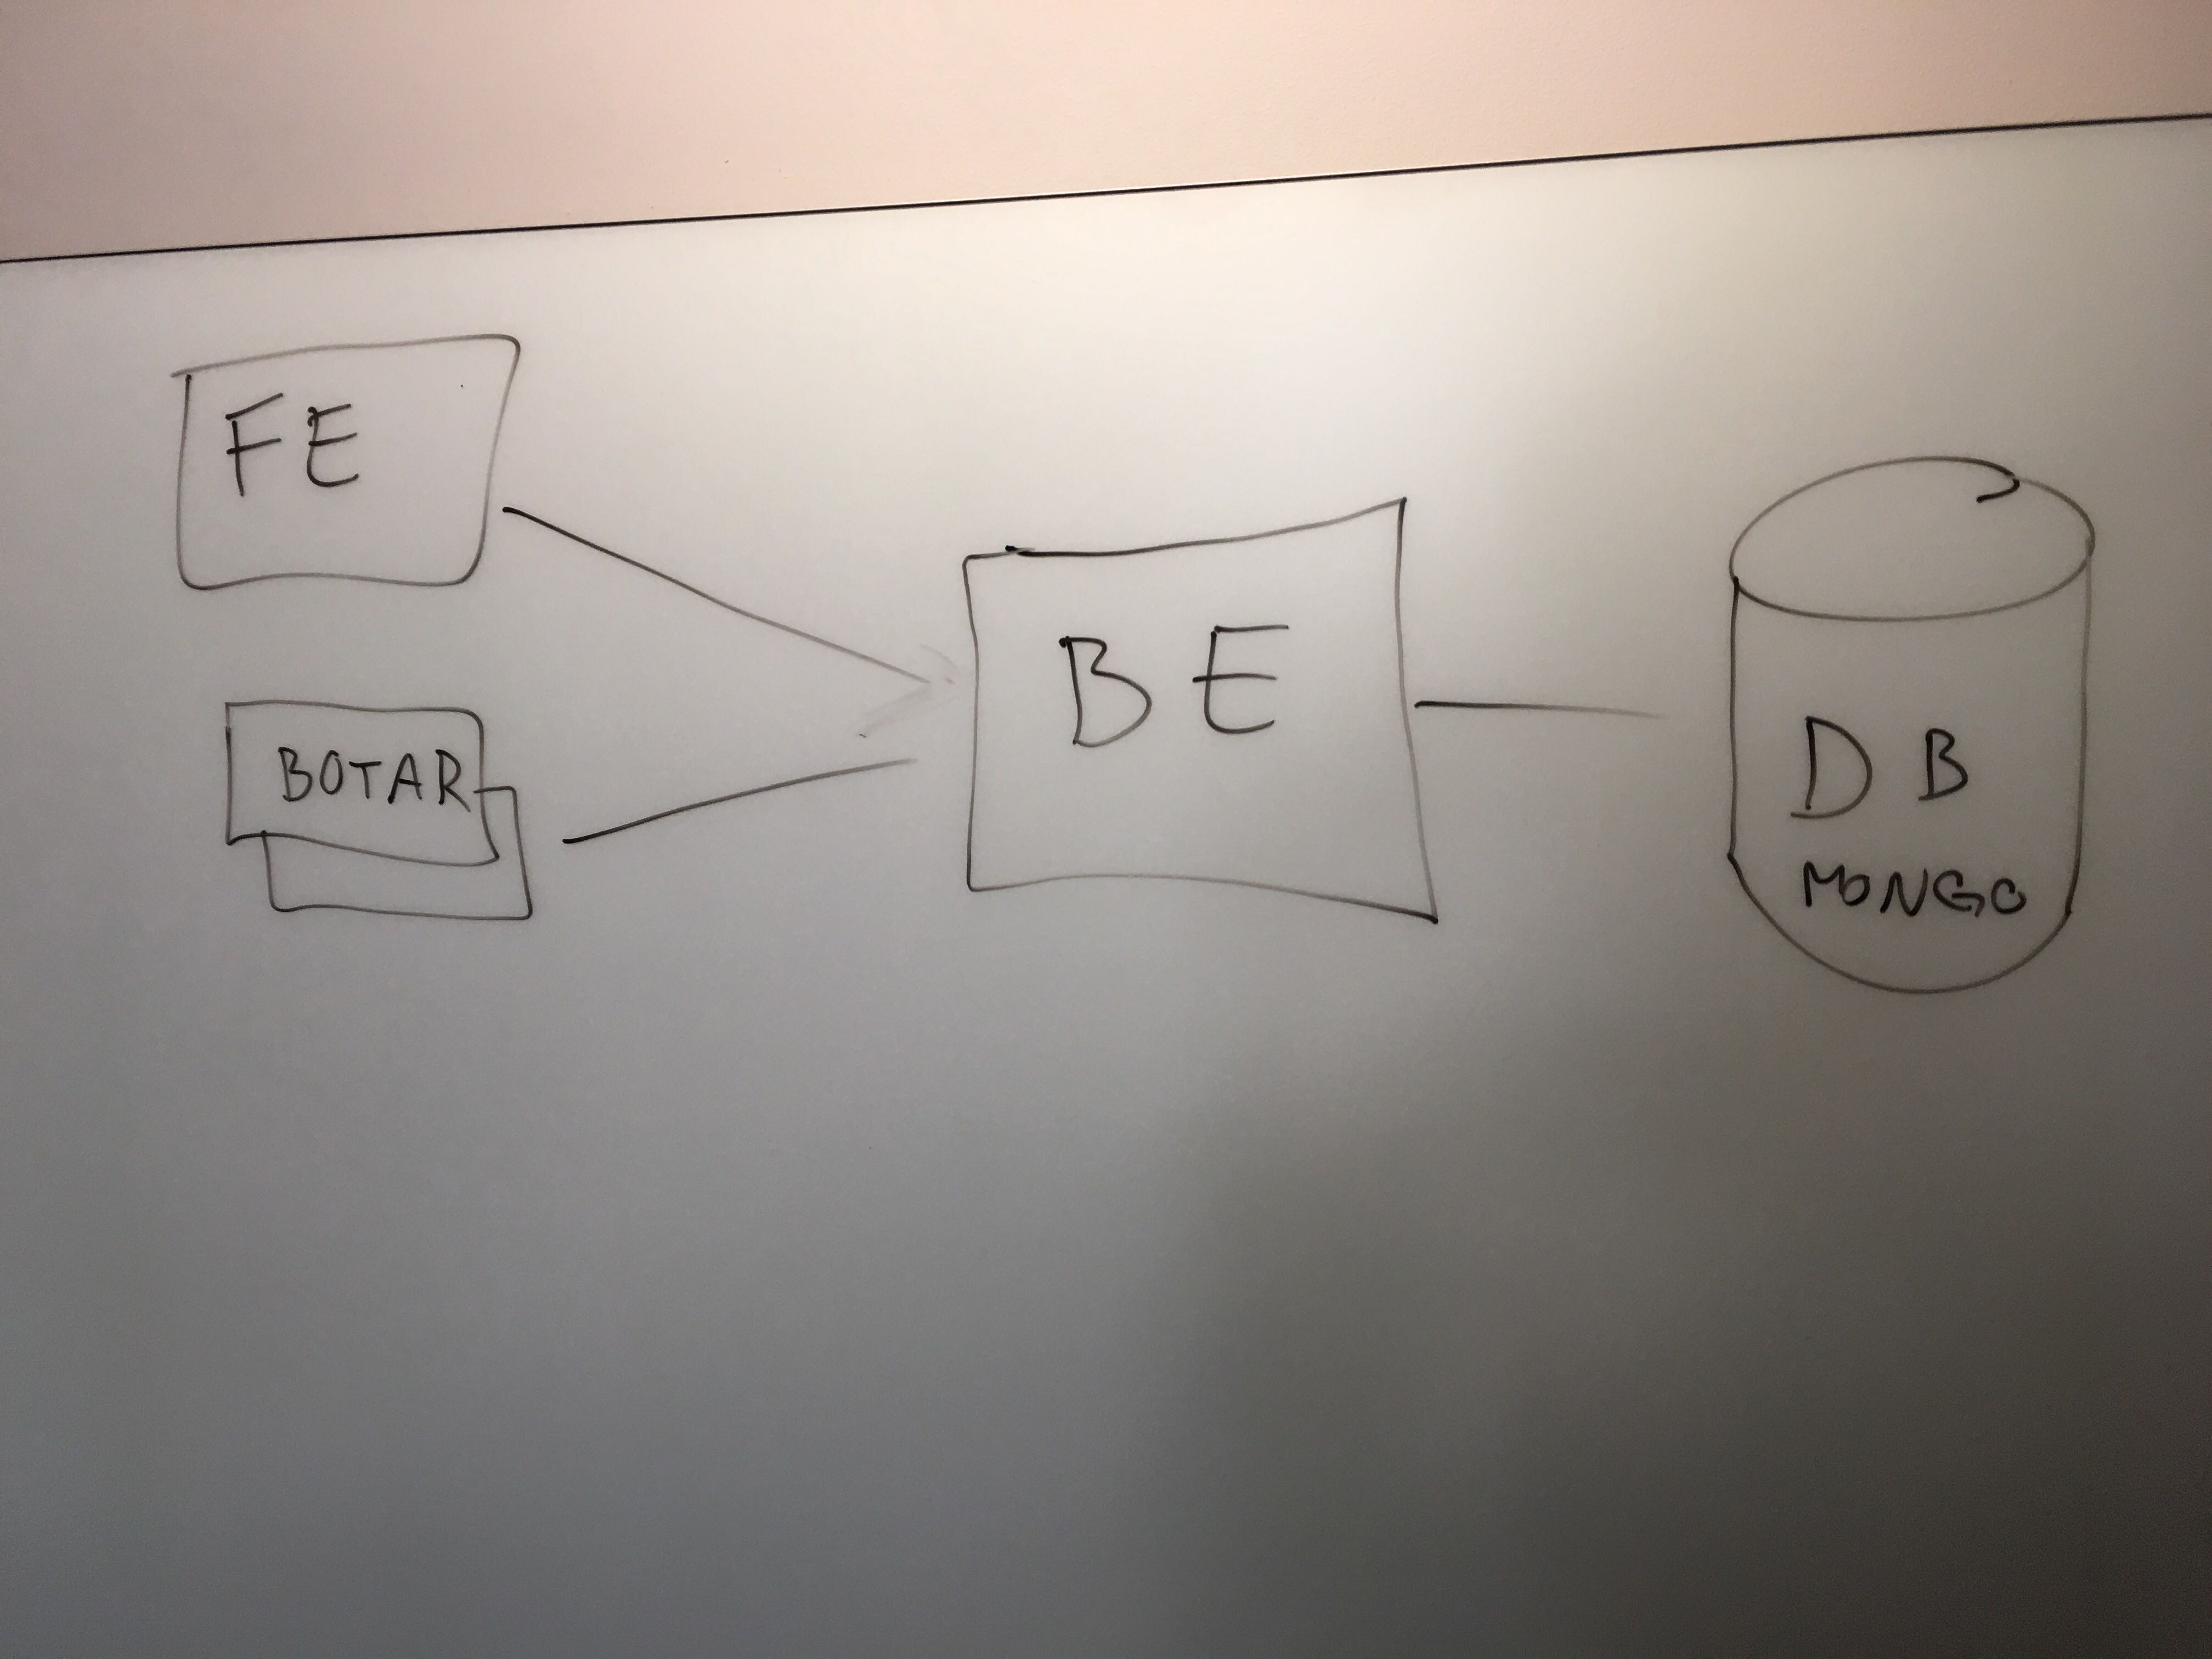 FE
BOTAR
BE
DB
MONGO